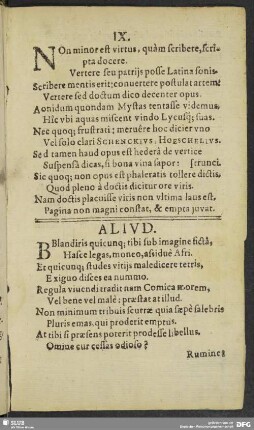 IX.
NOn minor est virtus, quàm scribere, scri-
pta docere.
Vertere seu patrijs posse Latina sonis.
Scribere mentis erit; conuertere postulat artem:
Vertere sed doctum dico decenter opus.
Aonidum quondam Mystas tentasse videmus,
Hîc vbi aquas miscent vindo Lycusq; suas.
Nec quoq; frustrati; meruêre hoc dicier vno
Vel solo clari SCHENCKIVS, HOESCHELIVS.
Sed tamen haud opus est hederâ de vertice
Suspensâ dicas, si bona vina sapor: [frunci.
Sic quoq; non opus est phaleratis tollere dictis,
Quod pleno à doctis dicitur ore viris.
Nam doctis placuisse viris non vltima laus est,
Pagina non magni constat, & empta juvat.
ALIVD.
BLandiris quicunq; tibi sub imagine fictâ,
Hasce legas, moneo, assiduè Afri.
Et quicunq; studes vitijs maledicere tetris,
Exiguo disces ea nummo.
Regula viuendi tradit nam Comica morem,
Vel bene vel malè: præstat at illud.
Non minimum tribuis scurræ quia sæpè salebris
Pluris emas, qui proderit emptus.
At tibi si præsens poterit prodesse libellus,
Omine cur cessas odioso?
Rumine
SLUB